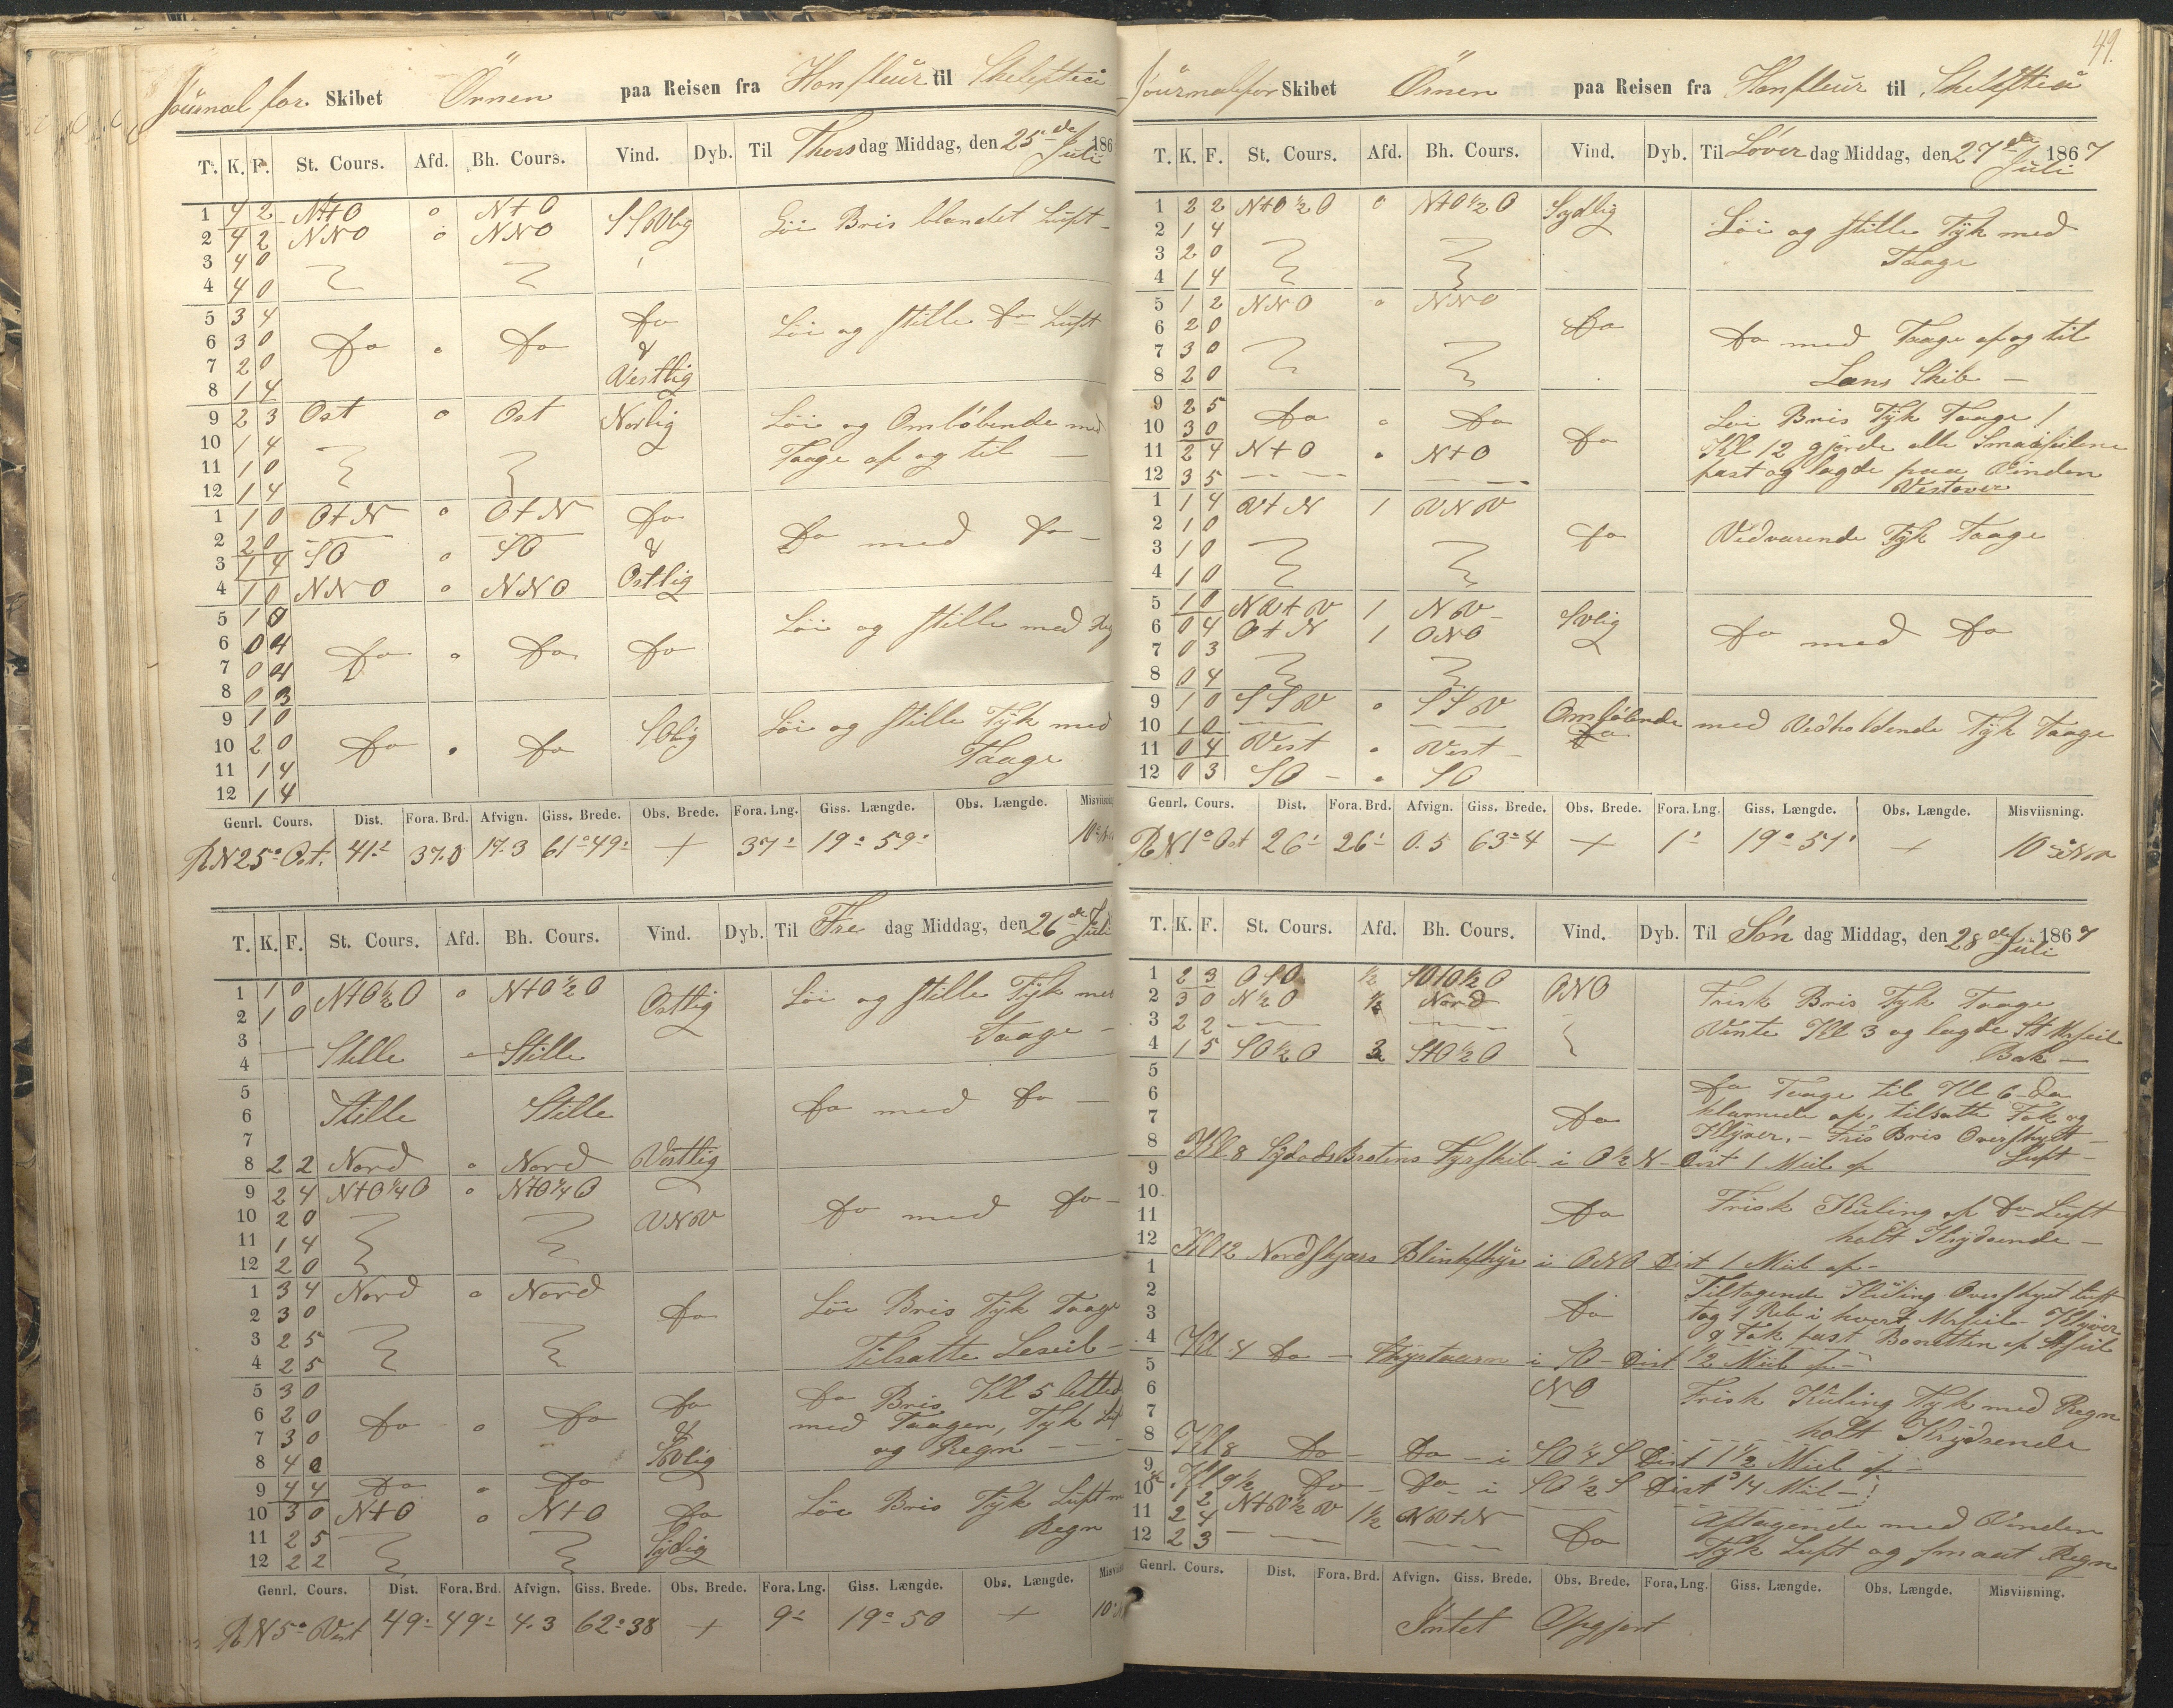 Journal for Skibet Örnen paa Reisen fra Honfleur til Skelefteå
T. K. F. St. Cours. Afd. Bh. Cours. Vind. Dyb. Til Thorsdag Middag, den 25de Juli 186
1 4 2 NtO 0 NtO SSVlig Löi Bris blandet Luft
2 4 2 NNO 0 NNO
3 4 0
4 4 0
5 3 4 do
6 3 0 Do 0 Do & Löi og stille do Luft
7 2 0 Vestlig
8 1 4
9 2 3 Ost 0 Ost Norlig Löi og Omlöbende med
10 1 4 Taage af og til
11 1 0
12 1 4
1 1 0 OtN 0 OtN Do
2 2 0 & Do med Do
3 1 4 SO 0 SO
4 1 0 NNO 0 NNO Ostlig
5 1 0 Löi og stille med
6 0 4 Do 0 Do Do
7 0 4
8 0 3
9 1 0 SOlig Löi og stille Tÿk med
10 2 0 Do 0 Do Taage
11 1 4
12 1 4
Genrl. Cours. Dist. Fora. Brd. Afvign. Giss. Brede. Obs. Brede. Fora. Lng. Giss. Længde. Obs. Længde. Misviisning
R N 25° Ost. 41' 37.0 17.3 61°49' + 37' 19°59'
T. K. F. St. Cours. Afd. Bh. Cours. Vind. Dyb. Til Fredag Middag, den 26de Juli
1 1 0 NtO½O 0 NtO½O Ostlig Löi og stille Tÿk med
2 1 0 Taage
3 Stille Stille
4
5
6 Stille Stille Do med Do
7
8 2 2 Nord 0 Nord Vestlig
9 2 4 NtO¼O 0 NtO¼O
10 2 0 VNV Do med Do
11 1 4
12 2 0
1 3 4 Nord 0 Nord
2 3 0 Do Löi Bris Tÿk Taage
3 2 5 Tilsatte Leseil
4 2 5
5 3 0 Do Do Bris Kl 5 letted
6 2 0 Do 0 Do & med Taagen, Tyk
7 3 0 SVlig og Regn
8 4 0
9 4 4 Do 0 Do
10 3 0 NtO 0 NtO Do Löi Bris Tÿk Luft
11 2 5 Sÿdlig Regn
12 2 2
Genrl. Cours. Dist. Fora. Brd. Afvign. Giss. Brede. Obs. Brede. Fora. Lng. Giss. Længde. Obs. Længde.
R N 5° Vest 49' 49' 4.3 62°38 + 9' 19°50 +
49.
Journal for Skibet Örnen paa Reisen fra Honfleur til Skelefteå
T. K. F. St. Cours. Afd. Bh. Cours. Vind. Dyb. Til Löverdag Middag, den 27de Juli 1867
1 2 2 NtO½O 0 NtO½O Sydlig Löi og stille Tÿk med
2 1 4 Taage
3 2 0
4 1 4
5 1 2 NNO 0 NNO
6 2 0 Do Do med Taage af og til
7 3 0 Læns Skib
8 2 0
9 2 5 Do 0 Do Löi Bris Tÿk Taage
10 3 0 Do Kl 12 gjorde alle Smaaseilene
11 2 4 NtO 0 NtO fast og lagde paa Vinden
12 3 5 Vestover
1 1 4 VtN 1 VNV
2 1 0 Do Vedvarende Tÿk Taage
3 1 0
4 1 0
5 1 0 NVtV 1 NV SVlig
6 0 4 OtN 1 ONO Do med Do
7 0 3
8 0 4
9 1 0 SSV 0 SSV Omlöbende med Vedholdende Tÿk Taage
10 1 0 Do
11 0 4 Vest 0 Vest
12 0 3 SO 0 SO
Genrl. Cours. Dist. Fora. Brd. Afvign. Giss. Brede. Obs. Brede. Fora. Lng. Giss. Længde. Obs. Længde. Misviisning.
R N 1° Ost 26' 26' 0.5 63°4 + 1' 19°51' + 10°
T. K. F. St. Cours. Afd. Bh. Cours. Vind. Dyb. Til Söndag Middag, den 28de Juli 1867
1 2 3 OtO ½ SOtO½O ONO Frisk Bris Tÿk Taage
2 3 0 N½O ½ Nord Vente Kl 3 og lagde St Mrseil
3 2 2 Bak
4 1 5 SO½O StO½O
5 Do Taage til Kl 6 da
6 klarnede af, tilsatte Fok og
7 Do Klÿver. Fris Bris Overskyet
8 Kl. 8 Fyrskib i O½N Dist 1 Miil af Luft
9
10 Frisk Kuling af Do Luft
11 Do holt Krydsende
12 Kl 12 Nordskjærs Blinkfyr i ONO Dist 1 Miil af
1 Tiltagende Kuling Overskyet Luft
2 Do tog 1 Reb i hvert Mrseil Klÿver
3 & Fok fast Bonetten af
4 Kl 4 Do Fyrtaarn i SO Dist ½ Miil af
5
6 NO Frisk Kuling Tyk med Regn
7 holt Krydsende
8 Kl 8 Do Do i SO¼S Dist 1½ Miil af
9 Kl 9½ Do Do i SO½S Dist ¾ Miil
10 1 2 NtV½V 1½ NVtN
11 2 4 Do Aftagende med Vinden
12 2 3 Tyk Luft og smaat Regn
Genrl. Cours. Dist. Fora. Brd. Afvign. Giss. Brede. Obs. Brede. Fora. Lng. Giss. Længde. Obs. Længde. Misviisning.
Intet Opgjort